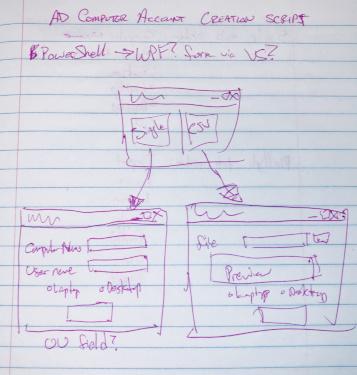 AD COMPUTER ACCOUNT CREATION SCRIPT
PowerShell -> WPF? form via VS?
Single
CSV
Computer Name
User name
Laptop
Desktop
OU field?
file
Preview
Laptop
Desktop